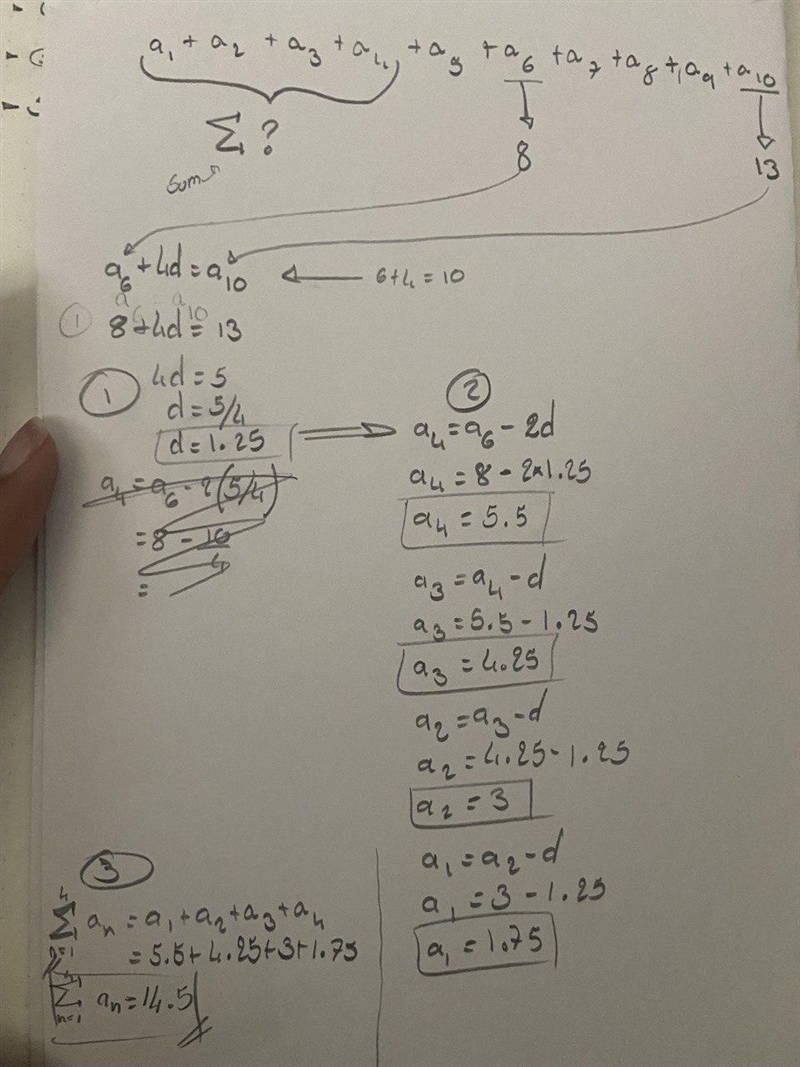 a₁ + a₂ + a₃ + a₄ + a₅ + a₆ + a₇ + a₈ + a₉ + a₁₀
Σ ?
Sum
8
13
a₆ + 4d = a₁₀
6+4 = 10
a₆ a₁₀
① 8 + 4d = 13
①
4d = 5
d = 5/4
d = 1.25
a₄ = a₆ - 2(5/4)
= 8 - 10/4
=
②
a₄ = a₆ - 2d
a₄ = 8 - 2×1.25
a₄ = 5.5
a₃ = a₄ - d
a₃ = 5.5 - 1.25
a₃ = 4.25
a₂ = a₃ - d
a₂ = 4.25 - 1.25
a₂ = 3
a₁ = a₂ - d
a₁ = 3 - 1.25
a₁ = 1.75
③
4
Σ aₙ = a₁ + a₂ + a₃ + a₄
n=1
= 5.5 + 4.25 + 3 + 1.75
4
Σ aₙ = 14.5
n=1